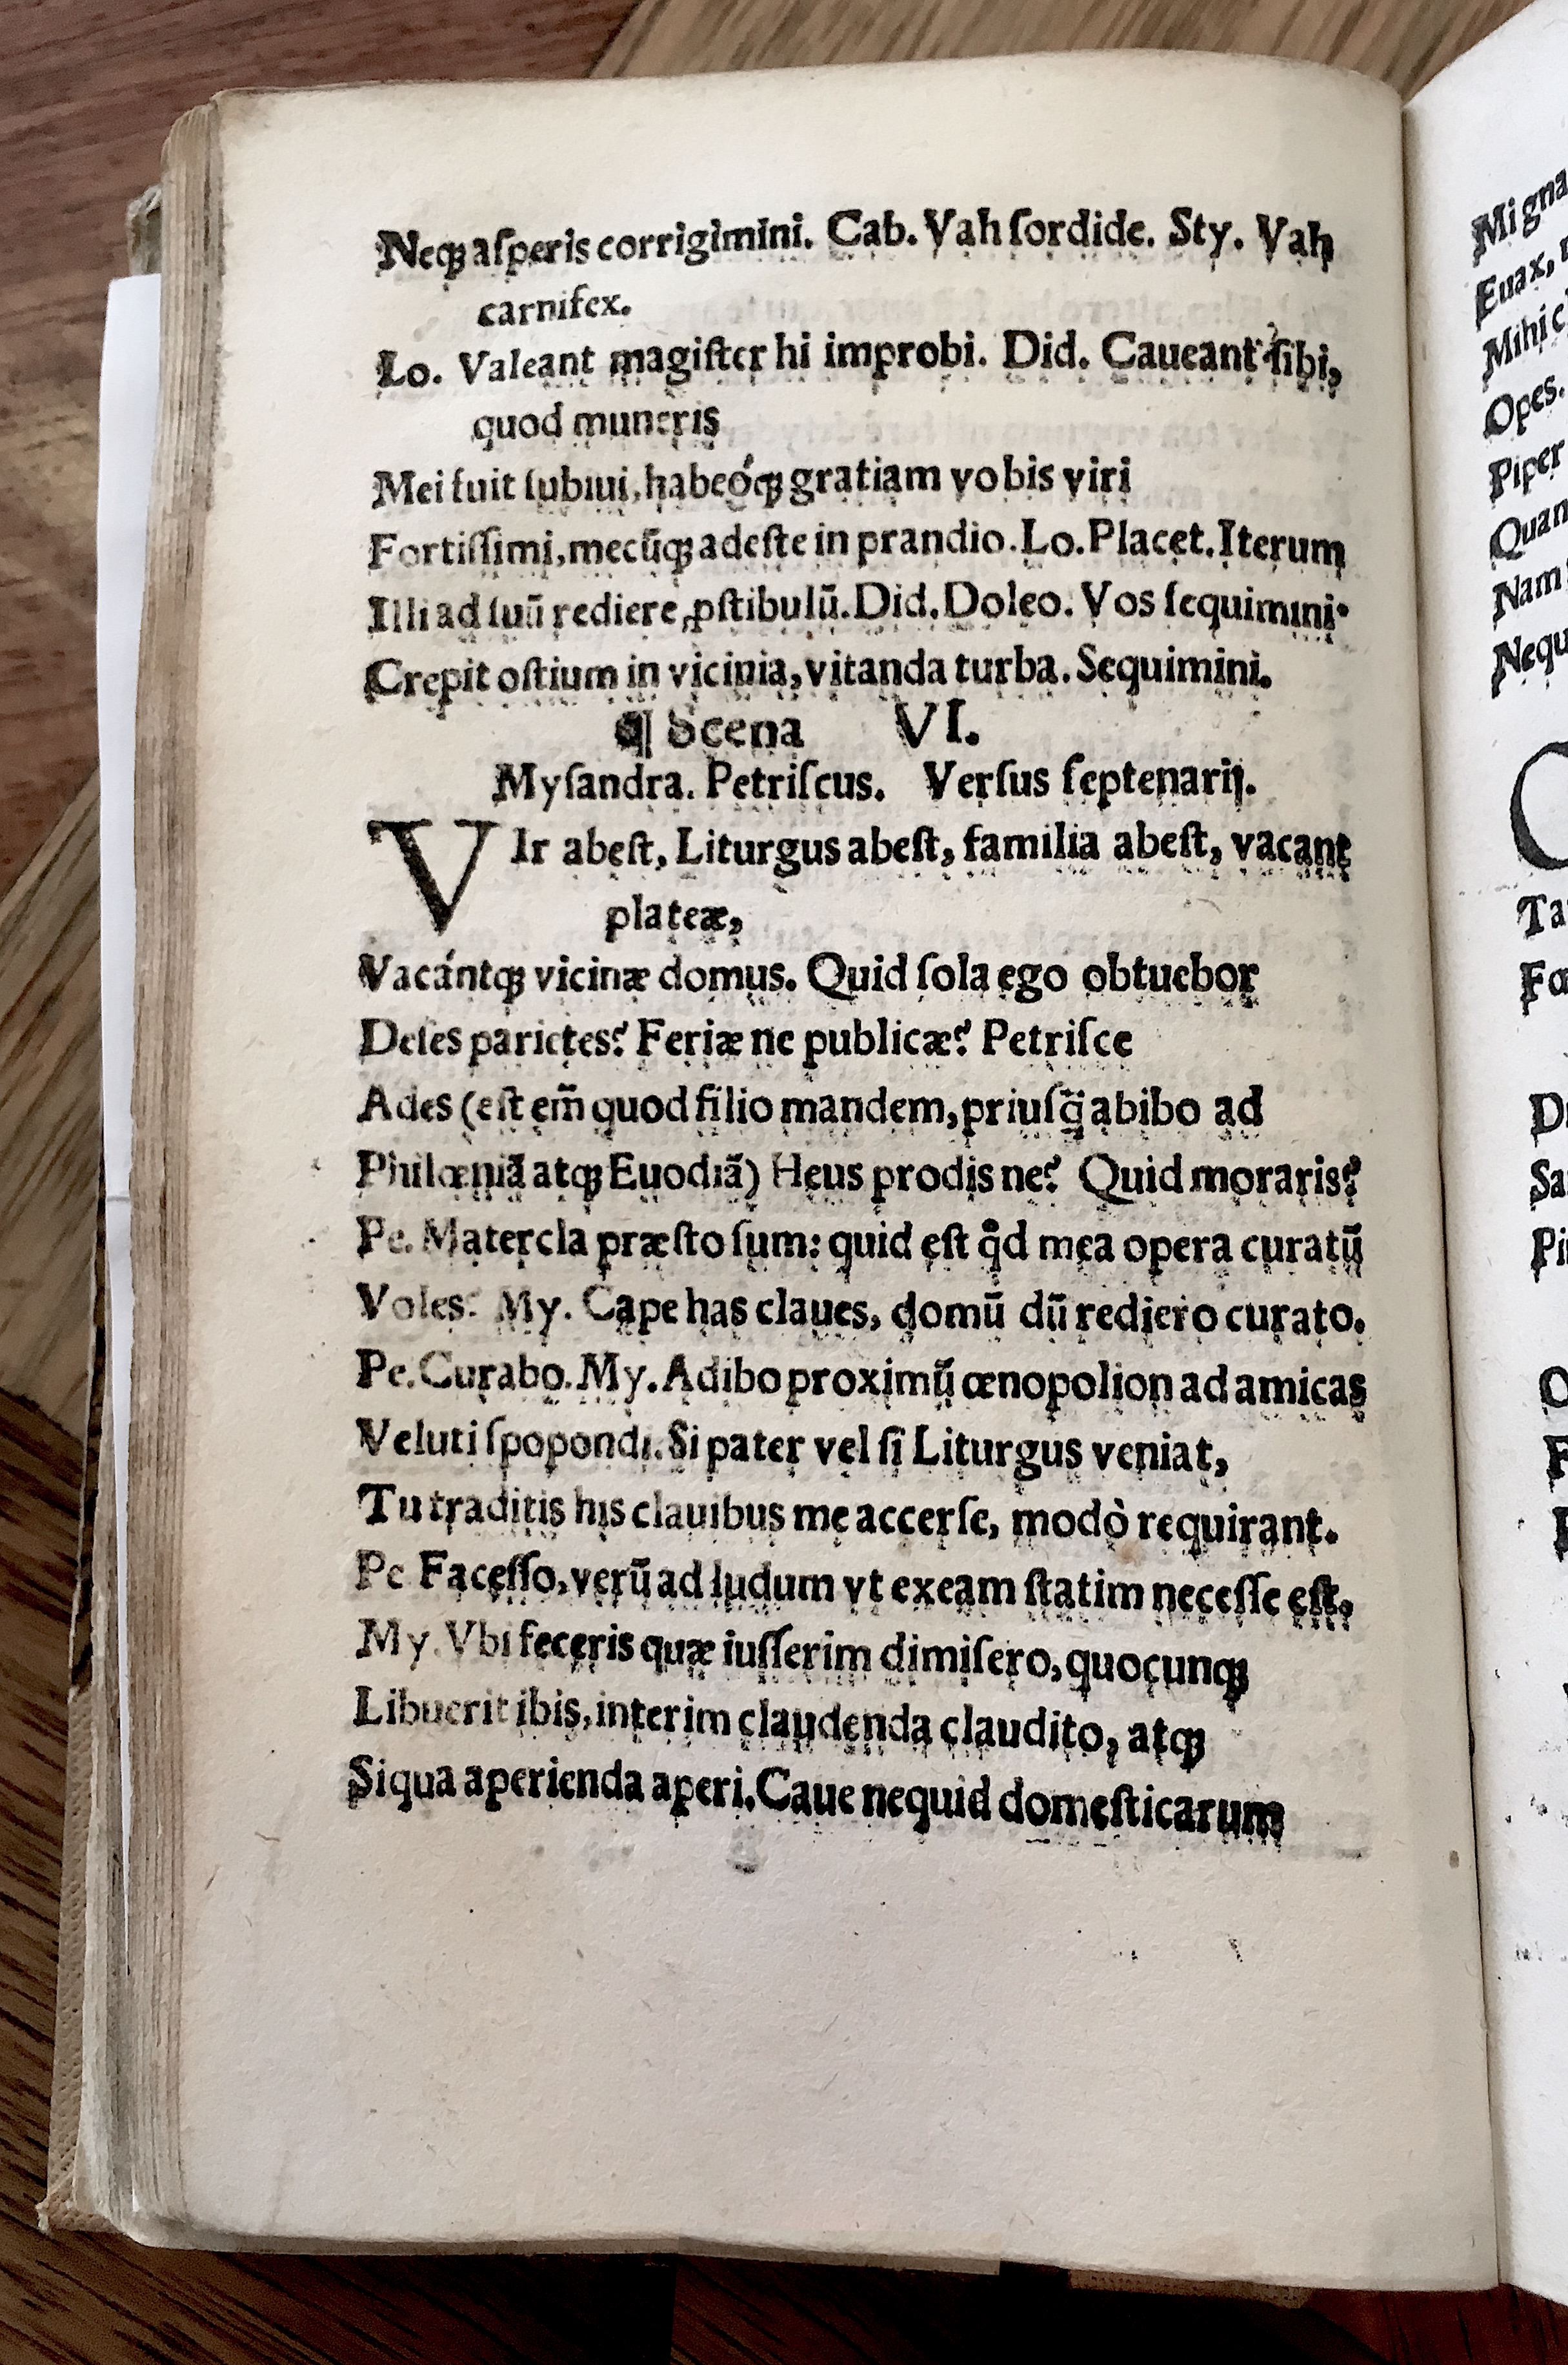 Neqꝫ aſperis corrigimini. Cab. Vah ſordide. Sty. Vah
carnifex.
Lo. Valeant magiſter hi improbi. Did. Caueant ſibi,
quod muneris
Mei fuit ſubiui, habeóqꝫ gratiam vobis viri
Fortiſſimi, mecũqꝫ adeſte in prandio. Lo. Placet. Iterum
Illi ad ſuũ rediere ꝓſtibulũ. Did. Doleo. Vos ſequimini.
Crepit oſtium in vicinia, vitanda turba. Sequimini.
¶ Scena VI.
Myſandra. Petriſcus. Verſus ſeptenarij.
VIr abeſt, Liturgus abeſt, familia abeſt, vacant
plateæ,
Vacántqꝫ vicinæ domus. Quid ſola ego obtuebor
Deſes parietes? Feriæ ne publicæ? Petriſce
Ades (eſt em̃ quod filio mandem, priuſq̃ abibo ad
Philœniã atqꝫ Euodiã) Heus prodis ne? Quid moraris?
Pe. Matercla præſto ſum: quid eſt qd mea opera curatũ
Voles? My. Cape has claues, domũ dũ rediero curato.
Pe. Curabo. My. Adibo proximũ œnopolion ad amicas
Veluti ſpopondi. Si pater vel ſi Liturgus veniat,
Tu traditis his clauibus me accerſe, modò requirant.
Pe Faceſſo, verũ ad ludum vt exeam ſtatim neceſſe eſt,
My. Vbi feceris quæ iuſſerim dimiſero, quocunqꝫ
Libuerit ibis, interim claudenda claudito, atqꝫ
Siqua aperienda aperi. Caue nequid domeſticarum
Mi gna
Euax,
Mihi c
Opes.
Piper
Quan
Nam
Nequ
Ta
Fœ
Sa